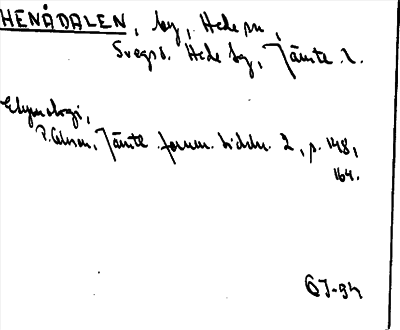 HENÅDALEN, by, Hede sn,
Svegs d. Hede tg, Jämtl. l.
Etymologi,
P. Olsson, Jämtl. fornm. tidskr. 2, p. 148,
164.